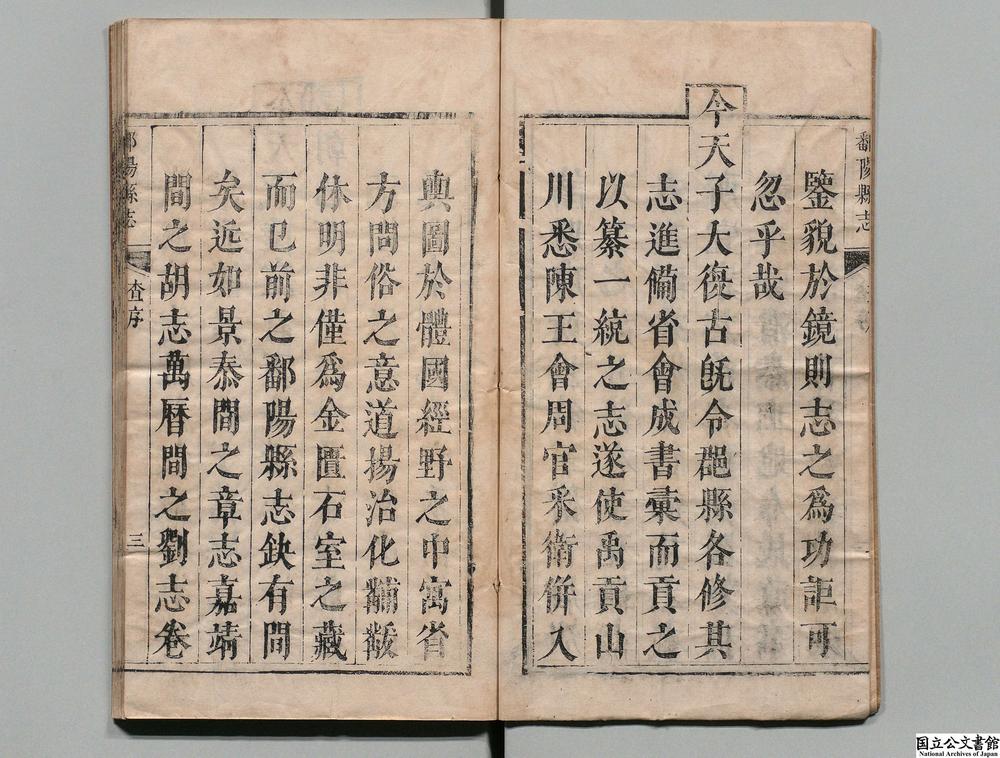 鄱陽縣志
鑒貌於鏡則志之爲功詎可
忽乎哉
今天子大復古旣令郡縣各修其
志進備省會成書彙而貢之
以纂一統之志遂使禹貢山
川悉陳王會周官采衛併入
輿圖於體國經野之中寓省
方問俗之意道揚治化黼黻
休明非僅爲金匱石室之藏
而已前之鄱陽縣志缺有間
矣近如景泰間之章志嘉靖
間之胡志萬曆間之劉志卷
鄱陽縣志
查序
三
国立公文書館
National Archives of Japan